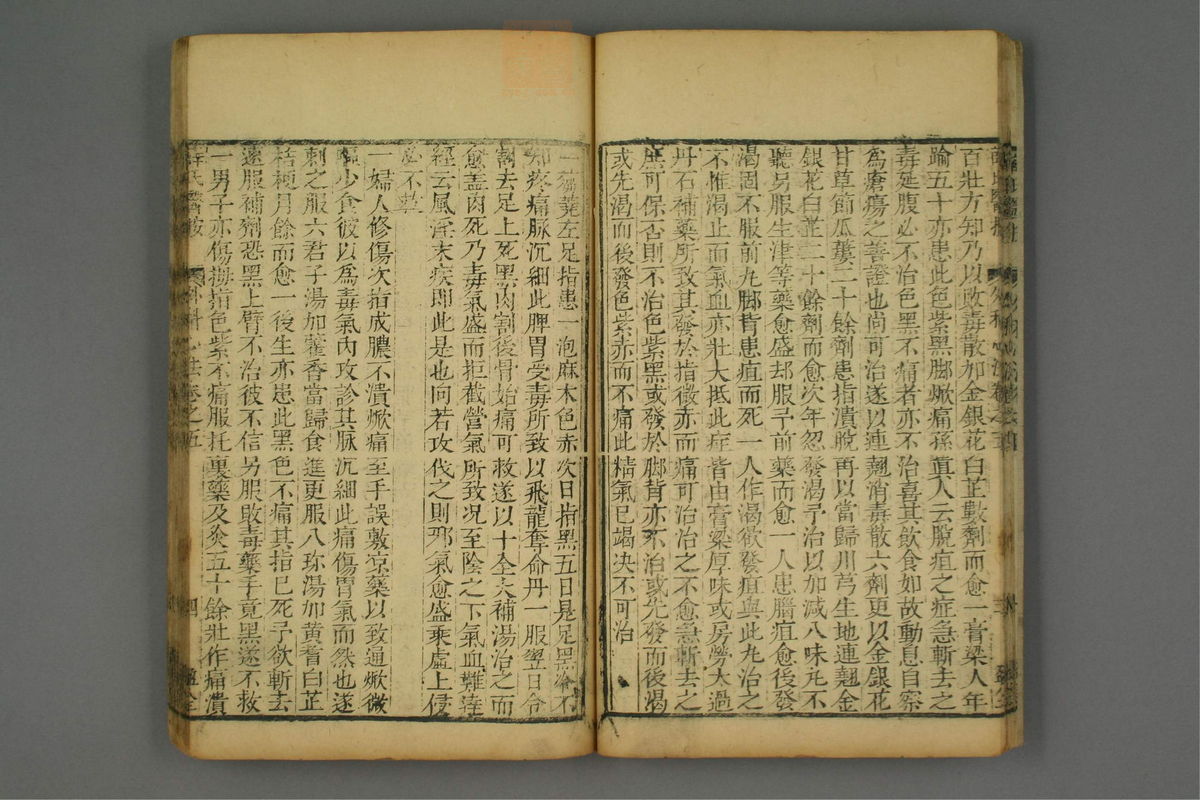 百壯方知乃以敗毒散加金銀花白芷數劑而愈一膏梁人年
踰五十亦患此色紫黑脚焮痛孫眞人云脫疽之症急斬去之
毒延腹必不治色黑不痛者亦不治喜其飲食如故動息自寧
爲瘡瘍之善證也尚可治遂以連翹消毒散六劑更以金銀花
甘草節瓜蔞二十餘劑患指潰脫再以當歸川芎生地連翹金
銀花白芷二十餘劑而愈次年忽發渴予治以加减八味丸不
聽另服生津等藥愈盛却服予前藥而愈一人患腦疽愈後發
渴固不服前丸脚背患疽而死一人作渴欲發疽與此丸治之
不惟渴止而氣血亦壯大抵此症皆由膏梁厚味或房勞太過
丹石補藥所致其發於指微赤而痛可治治之不愈急斬去之
庶可保否則不治色紫黑或發於脚背亦不治或先發而後渴
或先渴而後發色紫赤而不痛此精氣已竭决不可治
一
左足指患一泡麻木色赤次日指黑五日是足黑冷不
知疼痛脉沉細此脾胃受毒所致以飛龍奪命丹一服翌日令
割去足上死黑肉割後骨始痛可救遂以十全大補湯治之而
愈盖肉死乃毒氣盛而拒截營氣所致况至陰之下氣血難達
經云風淫末疾即此是也向若攻伐之則邪氣愈盛乘虛上侵
必不
一婦人修傷次指成膿不潰焮痛至手誤敷凉藥以致通焮微
嘔少食彼以爲毒氣內攻診其脉沉細此痛傷胃氣而然也遂
刺之服六君子湯加藿香當歸食進更服八珍湯加黃耆白芷
桔梗月餘而愈一後生亦患此黑色不痛其指已死予欲斬去
速服補劑恐黑上臂不治彼不信另服敗毒藥手竟黑遂不救
一男子亦傷拇指色紫不痛服托裏藥及灸五十餘壯作痛潰
薛氏醫按
外科心法卷之五
四